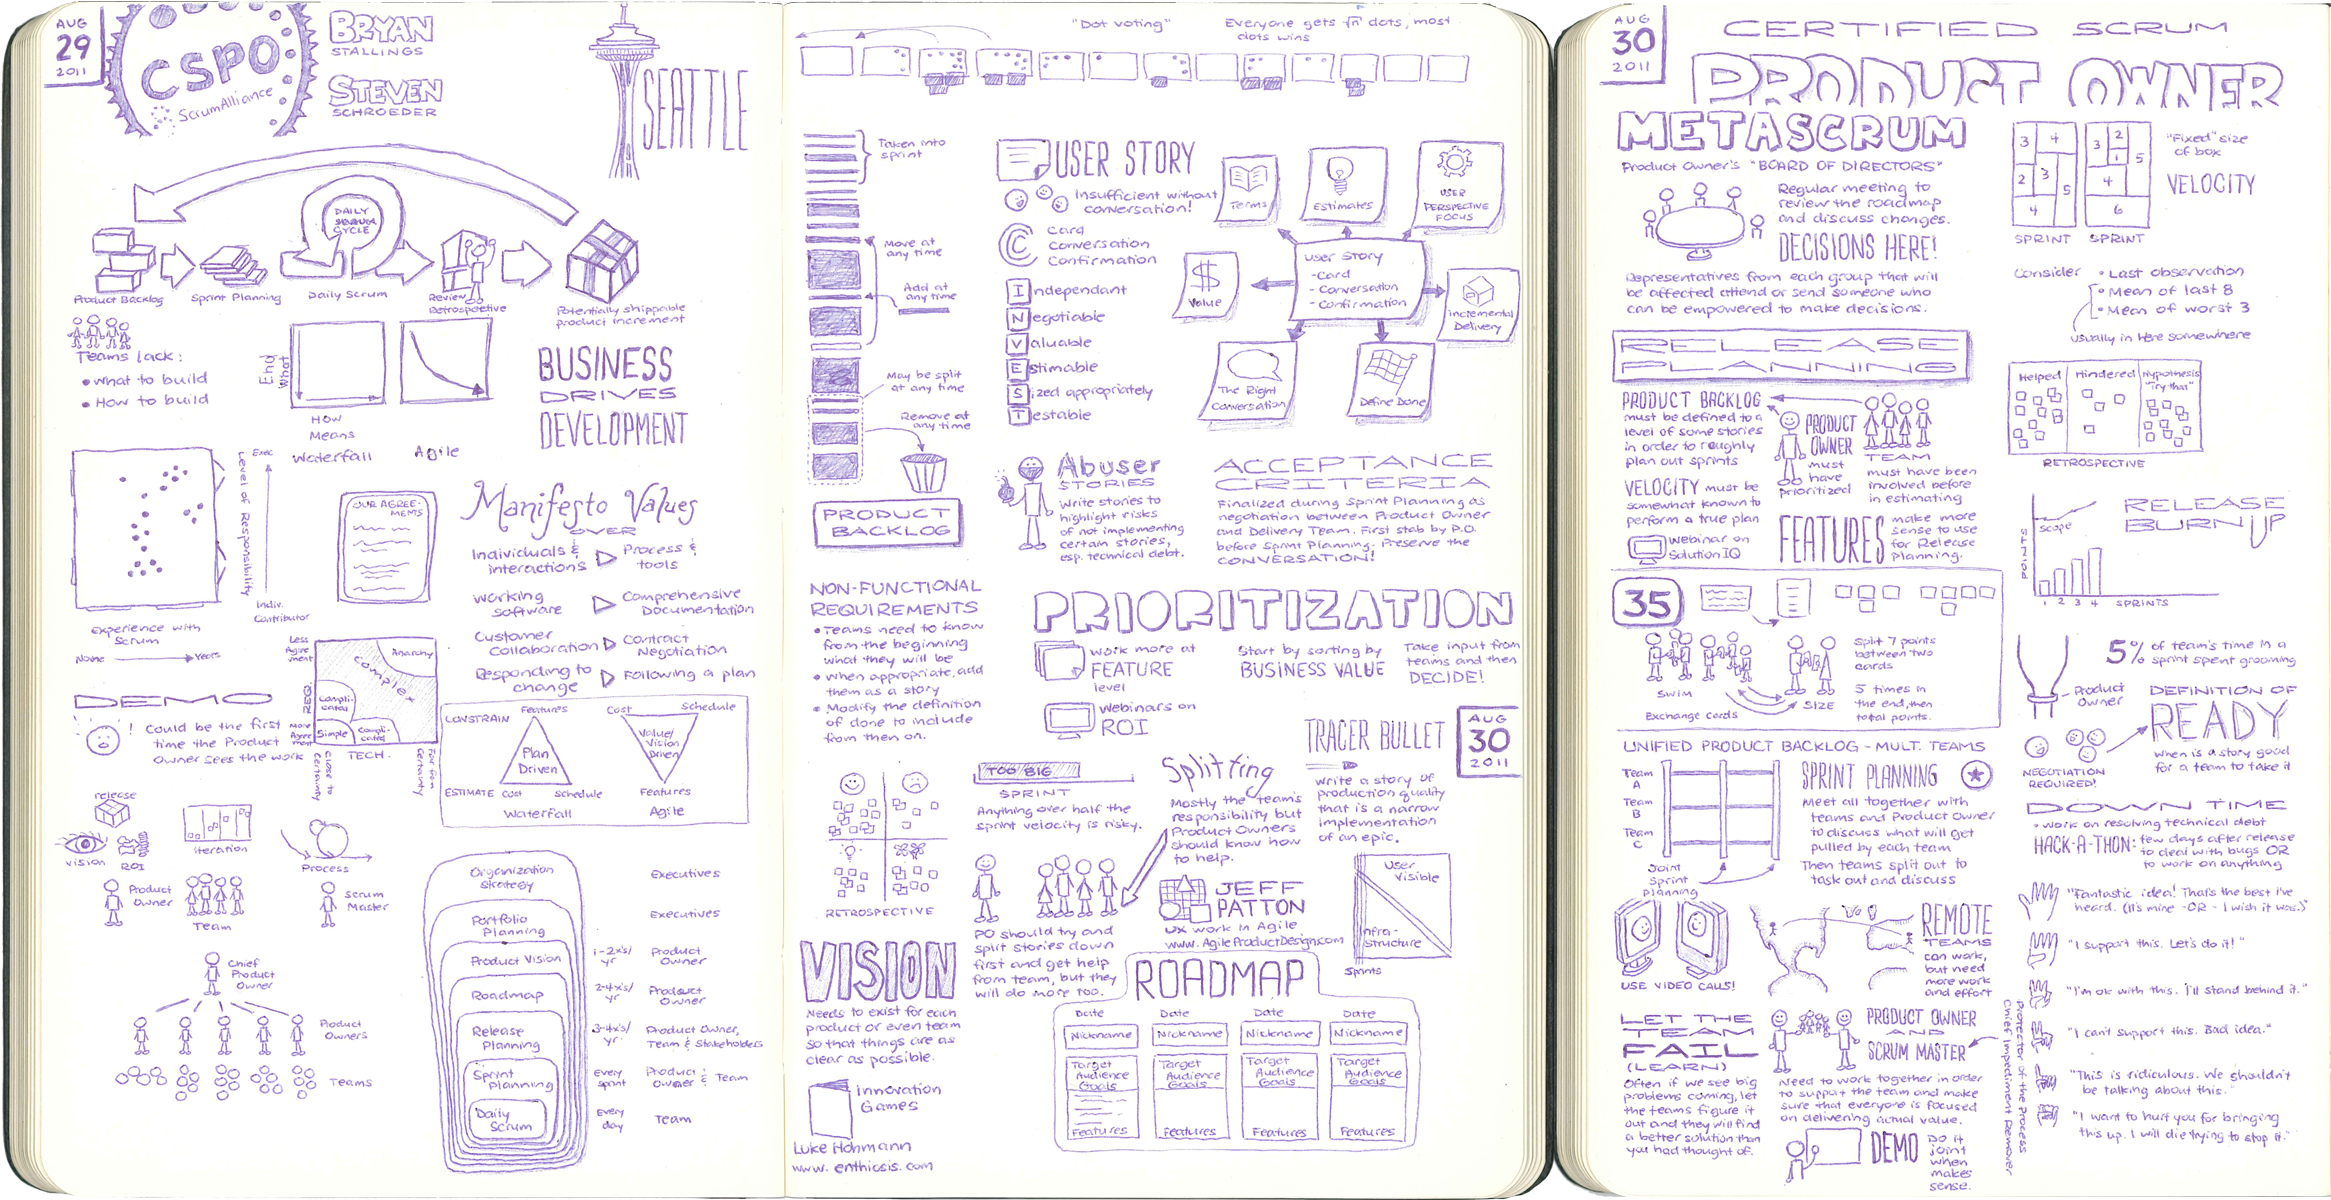 AUG
29
2011
CSPO
ScrumAlliance
BRYAN
STALLINGS
STEVEN
SCHROEDER
SEATTLE
DAILY
SCRUM
CYCLE
Product Backlog
Sprint Planning
Daily Scrum
Review
Retrospective
Potentially shippable
product increment
Teams lack:
• What to build
• How to build
End
What
How
Means
Waterfall
Agile
BUSINESS
DRIVES
DEVELOPMENT
Level of Responsibility
Exec
Indiv.
Contributor
Experience with
Scrum
None
Years
OUR AGREE-
MENTS
Manifesto Values
OVER
Individuals &
interactions
Process &
tools
Working
Software
Comprehensive
Documentation
Customer
Collaboration
Contract
Negotiation
Responding to
change
Following a plan
DEMO
! Could be the first
time the Product
Owner sees the work
Less
Agree-
ment
REQ.
More
Agree-
ment
Anarchy
Complex
Compli-
cated
Simple
Compli-
cated
Close to
Certainty
TECH.
Far from
Certainty
CONSTRAIN
Features
Cost
Schedule
Plan
Driven
Value/
Vision
Driven
ESTIMATE
Cost
Schedule
Features
Waterfall
Agile
release
vision
ROI
iteration
Process
Product
Owner
Team
Scrum
Master
Chief
Product
Owner
Product
Owners
Teams
Organization
Strategy
Executives
Portfolio
Planning
Executives
Product Vision
1-2x's/
yr
Product
Owner
Roadmap
2-4x's/
yr
Product
Owner
Release
Planning
3-4x's/
yr.
Product Owner,
Team & Stakeholders
Sprint
Planning
Every
sprint
Product
Owner & Team
Daily
Scrum
Every
day
Team
"Dot voting"
Everyone gets √n dots, most
dots wins
Taken into
sprint
Move at
any time
Add at
any time
May be split
at any time
Remove at
any time
PRODUCT
BACKLOG
USER STORY
Insufficient without
conversation!
Card
Conversation
Confirmation
Independant
Negotiable
Valuable
Estimable
Sized appropriately
Testable
Terms
Estimates
USER
PERSPECTIVE
FOCUS
Value
User Story
- Card
- Conversation
- Confirmation
Incremental
Delivery
The Right
Conversation
Define Done
Abuser
STORIES
Write stories to
highlight risks
of not implementing
certain stories,
esp. technical debt.
ACCEPTANCE
CRITERIA
Finalized during Sprint Planning as
negotiation between Product Owner
and Delivery Team. First stab by P.O.
before Sprint Planning. Preserve the
CONVERSATION!
NON-FUNCTIONAL
REQUIREMENTS
• Teams need to know
from the beginning
what they will be
• When appropriate, add
them as a story
• Modify the definition
of done to include
from then on.
PRIORITIZATION
Work more at
FEATURE
level
Start by sorting by
BUSINESS VALUE
Take input from
teams and then
DECIDE!
Webinars on
ROI
RETROSPECTIVE
TOO BIG
SPRINT
Anything over half the
sprint velocity is risky.
Splitting
Mostly the team's
responsibility but
Product Owners
should know how
to help.
TRACER BULLET
Write a story of
production quality
that is a narrow
implementation
of an epic.
AUG
30
2011
PO should try and
split stories down
first and get help
from team, but they
will do more too.
JEFF
PATTON
UX work in Agile
www.AgileProductDesign.com
User
Visible
Infra-
structure
Sprints
VISION
Needs to exist for each
product or even team
so that things are as
clear as possible.
Innovation
Games
Luke Hohmann
www. enthiosis.com
ROADMAP
Date
Date
Date
Date
Nickname
Nickname
Nickname
Nickname
Target
Audience
Goals
Target
Audience
Goals
Target
Audience
Goals
Target
Audience
Goals
Features
Features
Features
Features
AUG
30
2011
CERTIFIED SCRUM
PRODUCT OWNER
METASCRUM
Product Owner's "BOARD OF DIRECTORS"
Regular meeting to
review the roadmap
and discuss changes.
DECISIONS HERE!
Representatives from each group that will
be affected attend or send someone who
can be empowered to make decisions.
3
4
2
3
5
4
3
2
1
5
4
6
SPRINT
SPRINT
"Fixed" size
of box
VELOCITY
Consider
• Last observation
• Mean of last 8
• Mean of worst 3
usually in here somewhere
RELEASE
PLANNING
PRODUCT BACKLOG
must be defined to a
level of some stories
in order to roughly
plan out sprints
PRODUCT
OWNER
must
have
prioritized
TEAM
must have been
involved before
in estimating
VELOCITY must be
somewhat known to
perform a true plan
Webinar on
Solution IQ
FEATURES
make more
sense to use
for Release
Planning.
Helped
Hindered
Hypothesis
"Try that"
RETROSPECTIVE
Scope
POINTS
1 2 3 4
SPRINTS
RELEASE
BURN UP
35
SWIM
Exchange cards
SIZE
Split 7 points
between two
cards
5 times in
the end, then
total points.
5% of team's time in a
sprint spent grooming
Product
Owner
DEFINITION OF
READY
When is a story good
for a team to take it
NEGOTIATION
REQUIRED!
UNIFIED PRODUCT BACKLOG - MULT. TEAMS
Team
A
Team
B
Team
C
Joint
Sprint
Planning
SPRINT PLANNING
Meet all together with
teams and Product Owner
to discuss what will get
pulled by each team
Then teams split out to
task out and discuss
DOWN TIME
• work on resolving technical debt
HACK-A-THON: few days after release
to deal with bugs OR
to work on anything
USE VIDEO CALLS!
REMOTE
TEAMS
can work,
but need
more work
and effort
"Fantastic idea! That's the best I've
heard. (It's mine -OR- I wish it was.)"
"I support this. Let's do it!"
"I'm ok with this. I'll stand behind it."
"I can't support this. Bad idea."
"This is ridiculous. We shouldn't
be talking about this."
"I want to hurt you for bringing
this up. I will die trying to stop it."
LET THE
TEAM
FAIL
(LEARN)
Often if we see big
problems coming, let
the teams figure it
out and they will find
a better solution than
you had thought of.
PRODUCT OWNER
AND
SCRUM MASTER
Protector of the Process
Chief Impediment Remover
Need to work together in order
to support the team and make
sure that everyone is focused
on delivering actual value.
DEMO
Do it
joint
when
makes
sense.